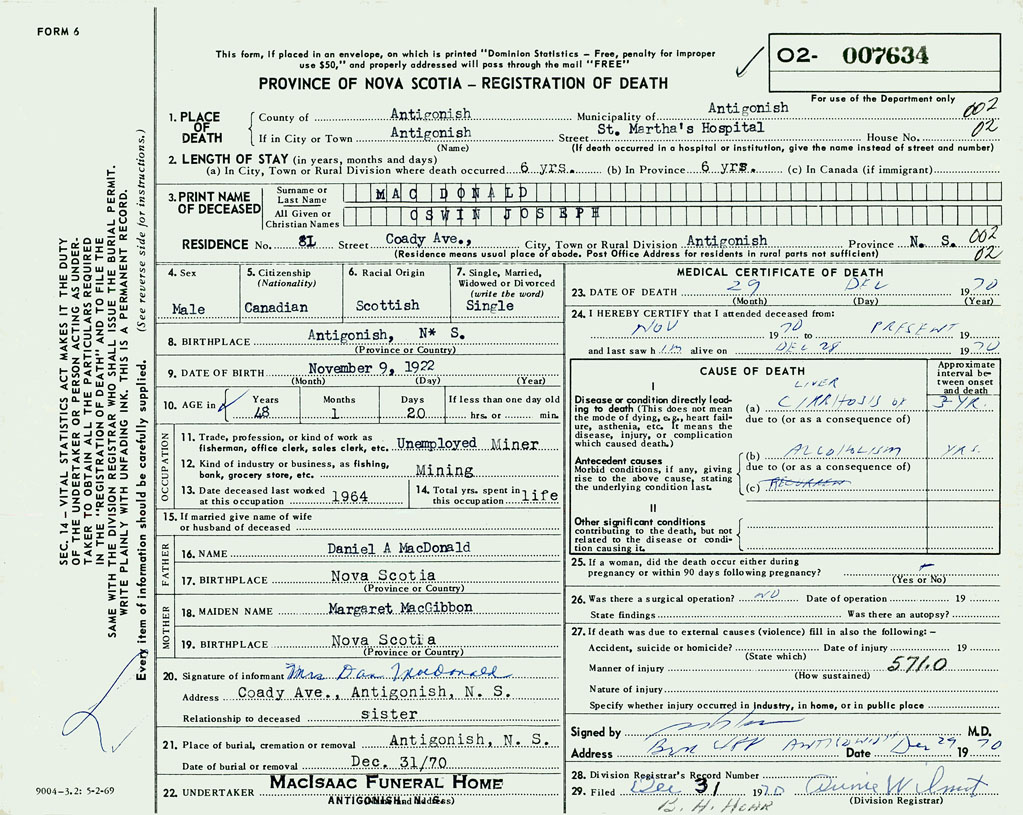 FORM 6
This form, if placed in an envelope, on which is printed "Dominion Statistics – Free, penalty for improper
use $50," and properly addressed will pass through the mail "FREE"
02- 007634
PROVINCE OF NOVA SCOTIA – REGISTRATION OF DEATH
For use of the Department only
1. PLACE OF DEATH
County of Antigonish Municipality of Antigonish 002
If in City or Town Antigonish Street St. Martha's Hospital House No. 02
(Name) (If death occurred in a hospital or institution, give the name instead of street and number)
2. LENGTH OF STAY (in years, months and days)
(a) In City, Town or Rural Division where death occurred 6 yrs. (b) In Province 6 yrs. (c) In Canada (if immigrant)
3. PRINT NAME OF DECEASED
Surname or Last Name MAC DONALD
All Given or Christian Names OSWIN JOSEPH
RESIDENCE No. 81 Street Coady Ave., City, Town or Rural Division Antigonish Province N. S. 002
(Residence means usual place of abode. Post Office Address for residents in rural parts not sufficient) 02
4. Sex
Male
5. Citizenship
(Nationality)
Canadian
6. Racial Origin
Scottish
7. Single, Married,
Widowed or Divorced
(write the word)
Single
8. BIRTHPLACE Antigonish, N* S.
(Province or Country)
9. DATE OF BIRTH November 9, 1922
(Month) (Day) (Year)
10. AGE in Years Months Days If less than one day old
48 1 20 hrs. or min.
OCCUPATION
11. Trade, profession, or kind of work as
fisherman, office clerk, sales clerk, etc. Unemployed Miner
12. Kind of industry or business, as fishing,
bank, grocery store, etc. Mining
13. Date deceased last worked
at this occupation 1964
14. Total yrs. spent in
this occupation life
15. If married give name of wife
or husband of deceased
FATHER
16. NAME Daniel A MacDonald
17. BIRTHPLACE Nova Scotia
(Province or Country)
MOTHER
18. MAIDEN NAME Margaret MacGibbon
19. BIRTHPLACE Nova Scotia
(Province or Country)
20. Signature of informant Mrs Dan Macdonald
Address Coady Ave., Antigonish, N. S.
Relationship to deceased sister
21. Place of burial, cremation or removal Antigonish, N. S.
Date of burial or removal Dec. 31/70
22. UNDERTAKER MACISAAC FUNERAL HOME
ANTIGONISH, N. S.
MEDICAL CERTIFICATE OF DEATH
23. DATE OF DEATH 29 DEC 1970
(Month) (Day) (Year)
24. I HEREBY CERTIFY that I attended deceased from:
NOV 1970 to PRESENT 19
and last saw h im alive on DEC 28 1970
CAUSE OF DEATH
Approximate
interval be-
tween onset
and death
I
Disease or condition directly lead-
ing to death (This does not mean
the mode of dying, e.g., heart fail-
ure, asthenia, etc. It means the
disease, injury, or complication
which caused death.)
LIVER
(a) CIRRHOSIS OF 3 YR.
due to (or as a consequence of)
Antecedent causes
Morbid conditions, if any, giving
rise to the above cause, stating
the underlying condition last.
(b) ALCOHOLISM YRS.
due to (or as a consequence of)
(c)
II
Other significant conditions
contributing to the death, but not
related to the disease or condi-
tion causing it.
25. If a woman, did the death occur either during
pregnancy or within 90 days following pregnancy?
(Yes or No)
26. Was there a surgical operation? NO Date of operation 19
State findings Was there an autopsy?
27. If death was due to external causes (violence) fill in also the following: –
Accident, suicide or homicide? Date of injury 19
(State which)
Manner of injury 571.0
(How sustained)
Nature of injury
Specify whether injury occurred in industry, in home, or in public place
Signed by M.D.
Address Date Dec 29 1970
28. Division Registrar's Record Number
29. Filed Dec 31 1970
(Division Registrar)
SEC. 14 – VITAL STATISTICS ACT MAKES IT THE DUTY
OF THE UNDERTAKER OR PERSON ACTING AS UNDER-
TAKER TO OBTAIN ALL THE PARTICULARS REQUIRED
IN THE "REGISTRATION OF DEATH" AND TO FILE THE
SAME WITH THE DIVISION REGISTRAR WHO SHALL ISSUE THE BURIAL PERMIT.
WRITE PLAINLY WITH UNFADING INK. THIS IS A PERMANENT RECORD.
Every item of information should be carefully supplied. (See reverse side for instructions.)
9004-3.2: 5-2-69